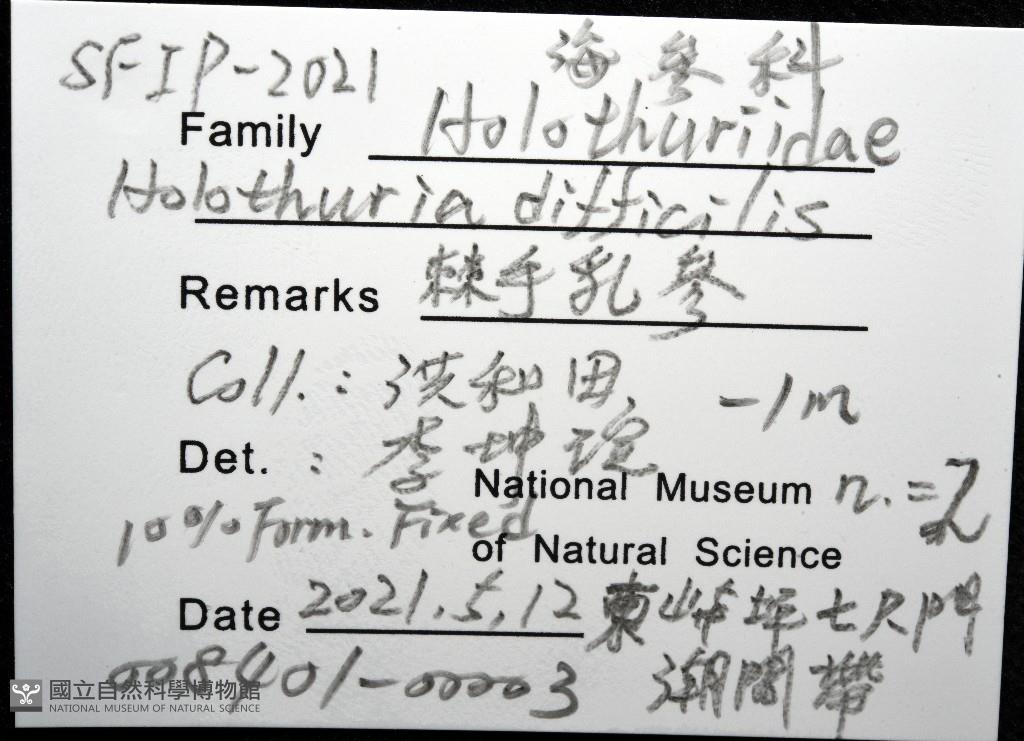 SFIP-2021 海參科
Family Holothuriidae
Holothuria difficilis
Remarks 棘手乳參
Coll.: 洪和田 -1m
Det.: 李坤瑄
National Museum n.=2
10% Form. Fixed
of Natural Science
Date 2021.5.12 東嶼坪七尺門
008401-00003 潮間帶
國立自然科學博物館
NATIONAL MUSEUM OF NATURAL SCIENCE